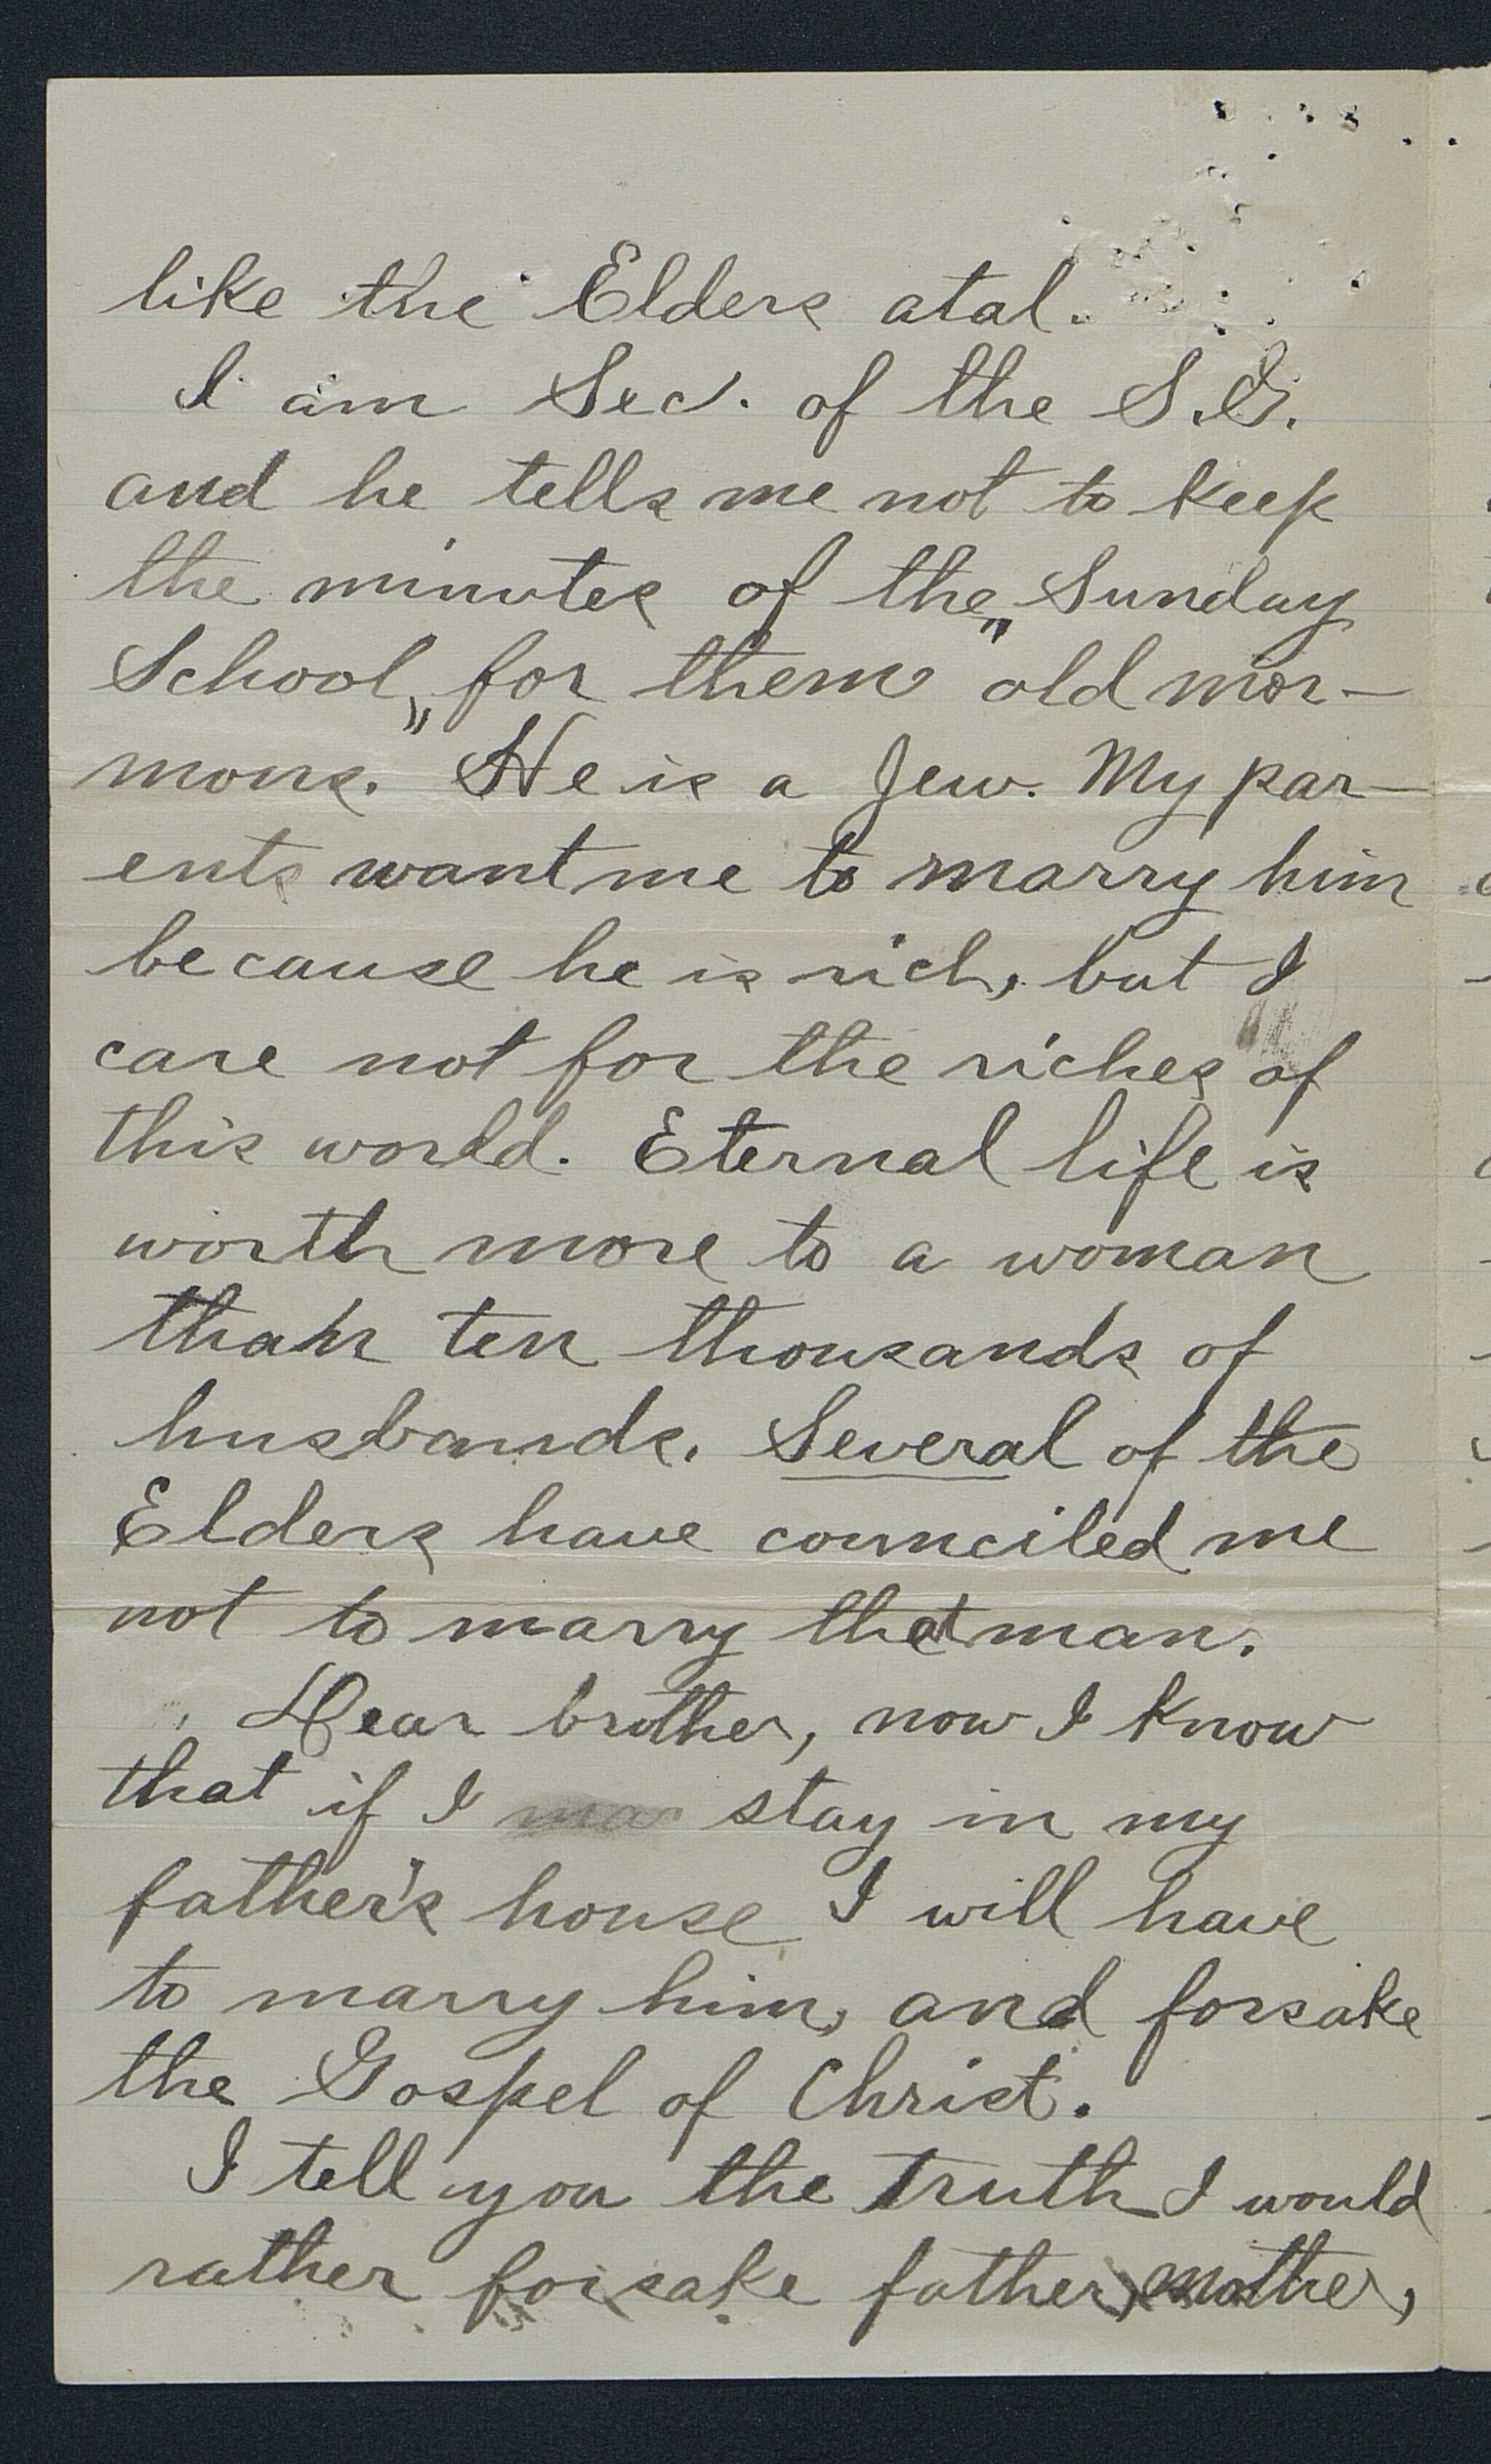 like the Elders atal.
I am Sec. of the S.S.
and he tells me not to keep
the minutes of the „Sunday
School„ for them old mor-
mons. He is a Jew. My par-
ents want me to marry him
because he is rich, but I
care not for the riches of
this world. Eternal life is
worth more to a woman
than ten thousands of
husbands. Several of the
Elders have counciled me
not to marry that man.
Dear brother, now I know
that if I stay in my
father's house I will have
to marry him, and forsake
the Gospel of Christ.
I tell you the truth I would
rather forsake father, mother,